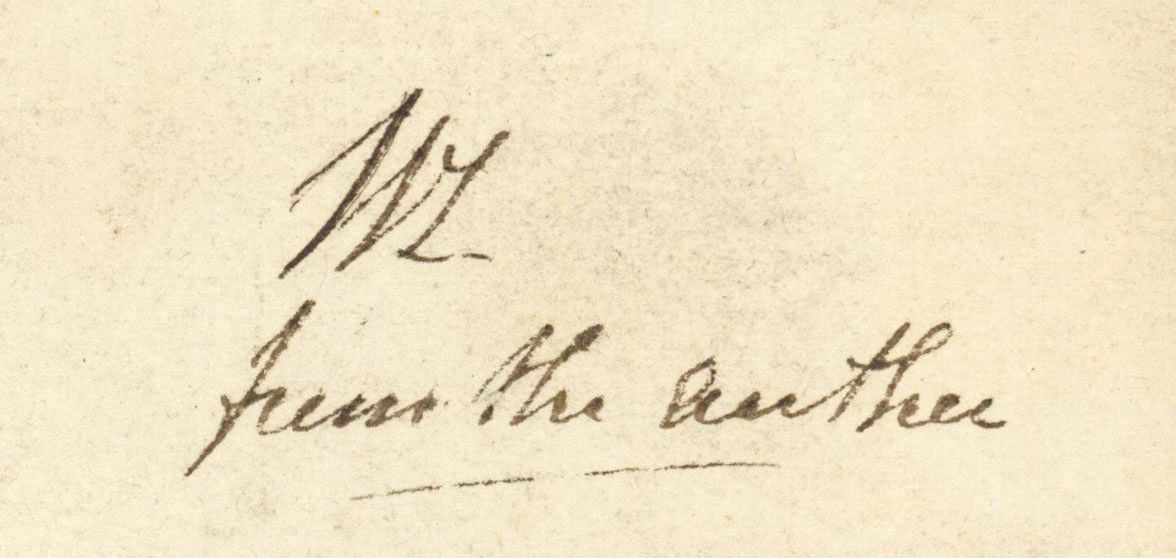 WL
from the author